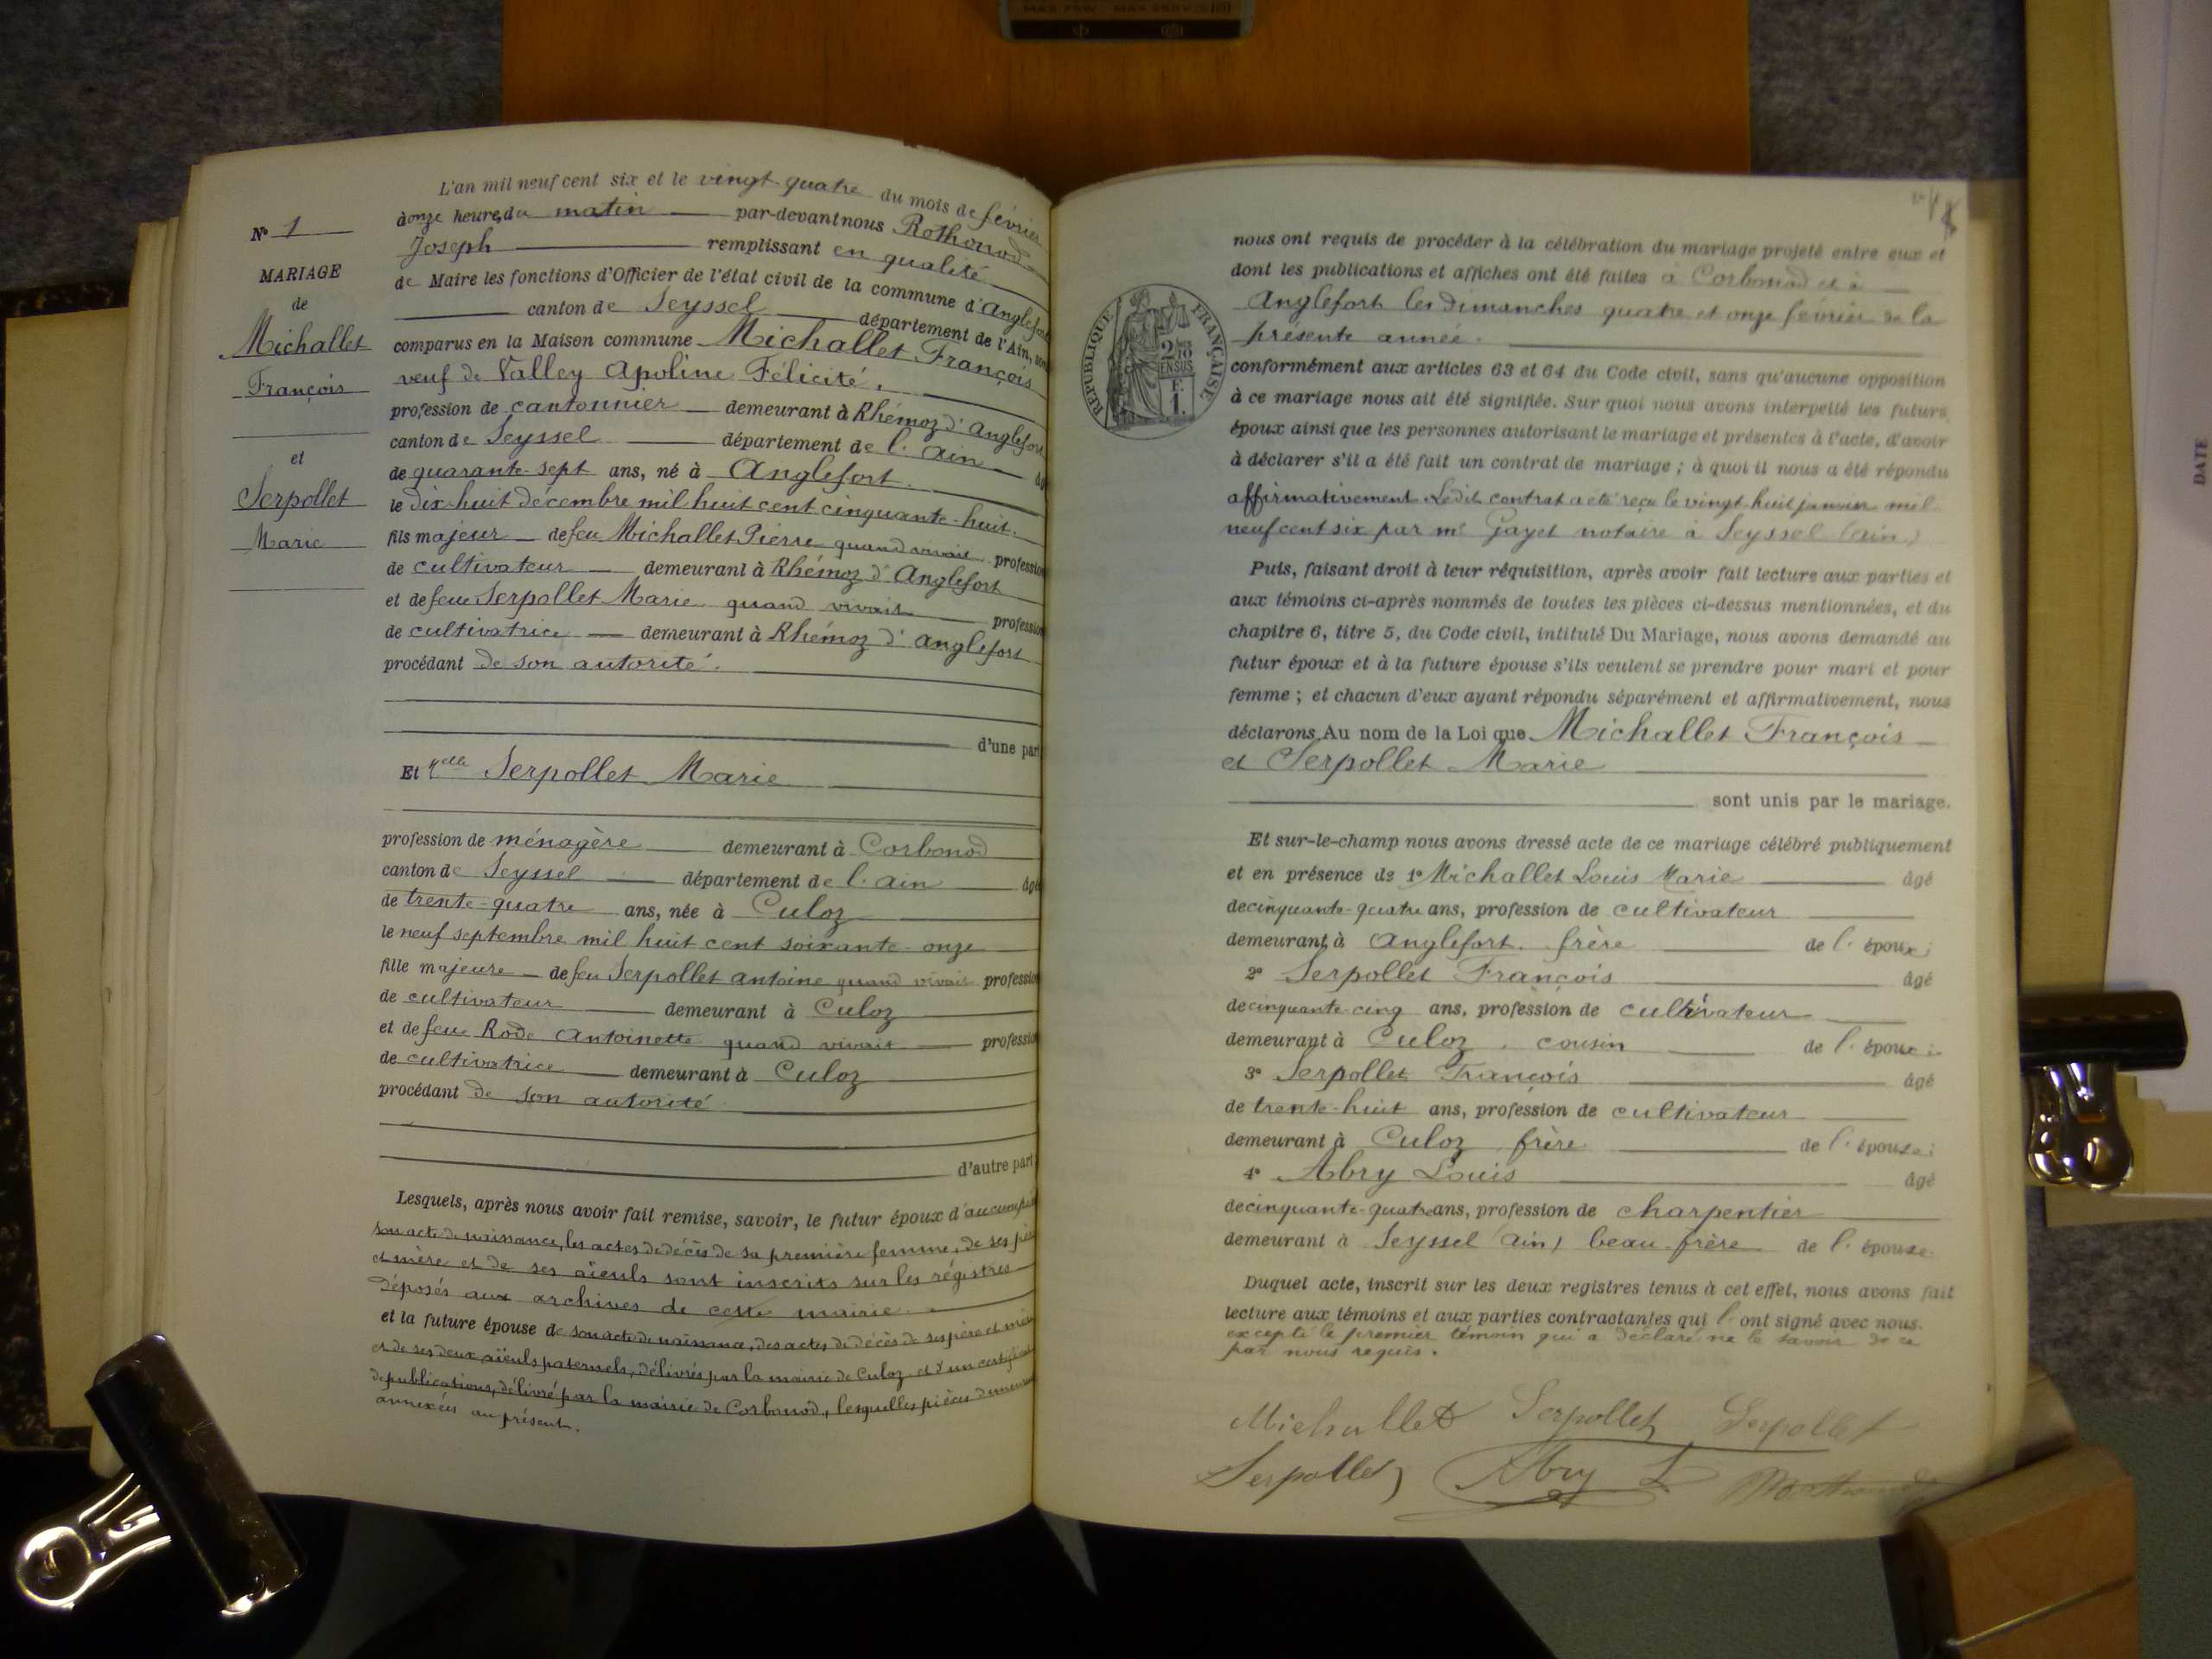 N° 1
MARIAGE
de
Michallet
François
et
Serpollet
Marie
L'an mil neuf cent six et le vingt-quatre du mois de février
à onze heures du matin par-devant nous Rothonod
Joseph remplissant en qualité
de Maire les fonctions d'Officier de l'état civil de la commune d'Anglefort
canton de Seyssel département de l'Ain, sont
comparus en la Maison commune Michallet François
veuf de Valley Apoline Félicité.
profession de cantonnier demeurant à Rhémoz d'Anglefort
canton de Seyssel département de l'Ain âgé
de quarante-sept ans, né à Anglefort.
le dix-huit décembre mil huit cent cinquante-huit.
fils majeur de feu Michallet Pierre quand vivait profession
de cultivateur demeurant à Rhémoz d'Anglefort
et de feue Serpollet Marie quand vivait profession
de cultivatrice demeurant à Rhémoz d'Anglefort
procédant de son autorité.
d'une part
Et Melle Serpollet Marie
profession de ménagère demeurant à Corbonod
canton de Seyssel département de l'Ain âgé
de trente-quatre ans, née à Culoz
le neuf septembre mil huit cent soixante-onze
fille majeure de feu Serpollet Antoine quand vivait profession
de cultivateur demeurant à Culoz
et de feue Rode Antoinette quand vivait profession
de cultivatrice demeurant à Culoz
procédant de son autorité
d'autre part
Lesquels, après nous avoir fait remise, savoir, le futur époux d'aucune pièce
son acte de naissance, les actes de décès de sa première femme, de ses père
et mère et de ses aïeuls sont inscrits sur les régistres
déposés aux archives de cette mairie.
et la future épouse de son acte de naissance, des actes de décès de ses père et mère
et de ses deux aïeuls paternels, délivrés par la mairie de Culoz et d'un certificat
de publications, délivré par la mairie de Corbonod, lesquelles pièces demeurent
annexées au présent.
nous ont requis de procéder à la célébration du mariage projeté entre eux et
dont les publications et affiches ont été faites à Corbonod et à
Anglefort les dimanches quatre et onze février de la
présente année.
RÉPUBLIQUE FRANÇAISE
2/10 EN SUS
F.
1.
conformément aux articles 63 et 64 du Code civil, sans qu'aucune opposition
à ce mariage nous ait été signifiée. Sur quoi nous avons interpellé les futurs
époux ainsi que les personnes autorisant le mariage et présentes à l'acte, d'avoir
à déclarer s'il a été fait un contrat de mariage ; à quoi il nous a été répondu
affirmativement. Ledit contrat a été reçu le vingt-huit janvier mil
neuf cent six par me Gayet notaire à Seyssel (Ain)
Puis, faisant droit à leur réquisition, après avoir fait lecture aux parties et
aux témoins ci-après nommés de toutes les pièces ci-dessus mentionnées, et du
chapitre 6, titre 5, du Code civil, intitulé Du Mariage, nous avons demandé au
futur époux et à la future épouse s'ils veulent se prendre pour mari et pour
femme ; et chacun d'eux ayant répondu séparément et affirmativement, nous
déclarons, Au nom de la Loi que Michallet François
et Serpollet Marie
sont unis par le mariage.
Et sur-le-champ nous avons dressé acte de ce mariage célébré publiquement
et en présence de 1° Michallet Louis Marie âgé
de cinquante-quatre ans, profession de cultivateur
demeurant à Anglefort. frère de l'époux ;
2° Serpollet François âgé
de cinquante-cinq ans, profession de cultivateur
demeurant à Culoz, cousin de l'époux ;
3° Serpollet François âgé
de trente-huit ans, profession de cultivateur
demeurant à Culoz frère de l'épouse ;
4° Abry Louis âgé
de cinquante-quatre ans, profession de charpentier
demeurant à Seyssel (Ain) beau-frère de l'épouse
Duquel acte, inscrit sur les deux registres tenus à cet effet, nous avons fait
lecture aux témoins et aux parties contractantes qui l'ont signé avec nous.
excepté le premier témoin qui a déclaré ne le savoir de ce
par nous requis.
Michallet Serpollet Serpollet
Serpollet Abry L
DATE